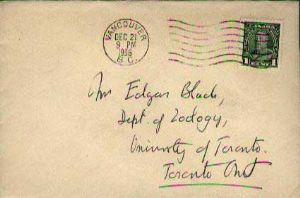 VANCOUVER
DEC 21
9 PM
1936
B.C.
1
Mr Edgar Black,
Dept. of Zoology,
University of Toronto.
Toronto Ont